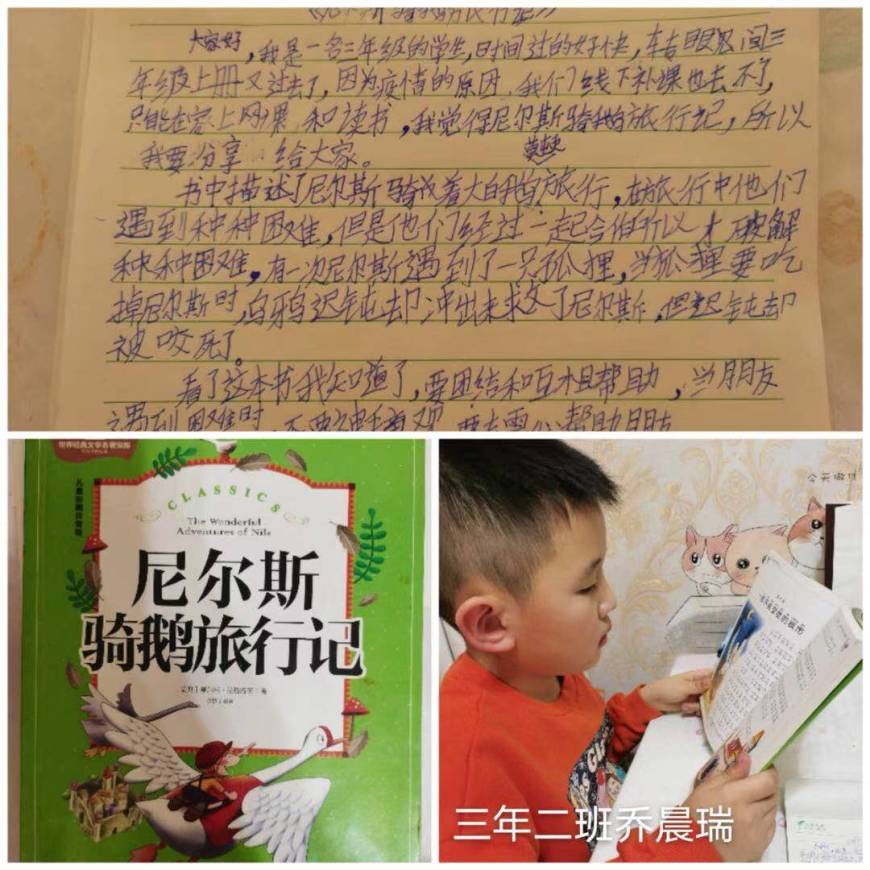 《尼尔斯骑鹅旅行记》
大家好，我是一名三年级的学生，时间过的好快，转眼间三
年级上册又过去了，因为疫情的原因，我们线下补课也去不了，
只能在家上网课和读书，我觉得尼尔斯骑鹅旅行记，所以
我要分享给大家。
书中描述了尼尔斯骑着大白鹅旅行，在旅行中他们
遇到种种困难，但是他们经过一起合作所以才破解
种种困难，有一次尼尔斯遇到了一只狐狸，当狐狸要吃
掉尼尔斯时，乌鸦迟钝却冲出来救了尼尔斯，但迟钝却
被咬死了。
看了这本书我知道了，要团结和互相帮助，当朋友
遇到困难时，不要
帮助朋友
世界经典文学名著宝库
CLASSICS
The Wonderful
Adventures of Nils
尼尔斯
骑鹅旅行记
三年二班乔晨瑞